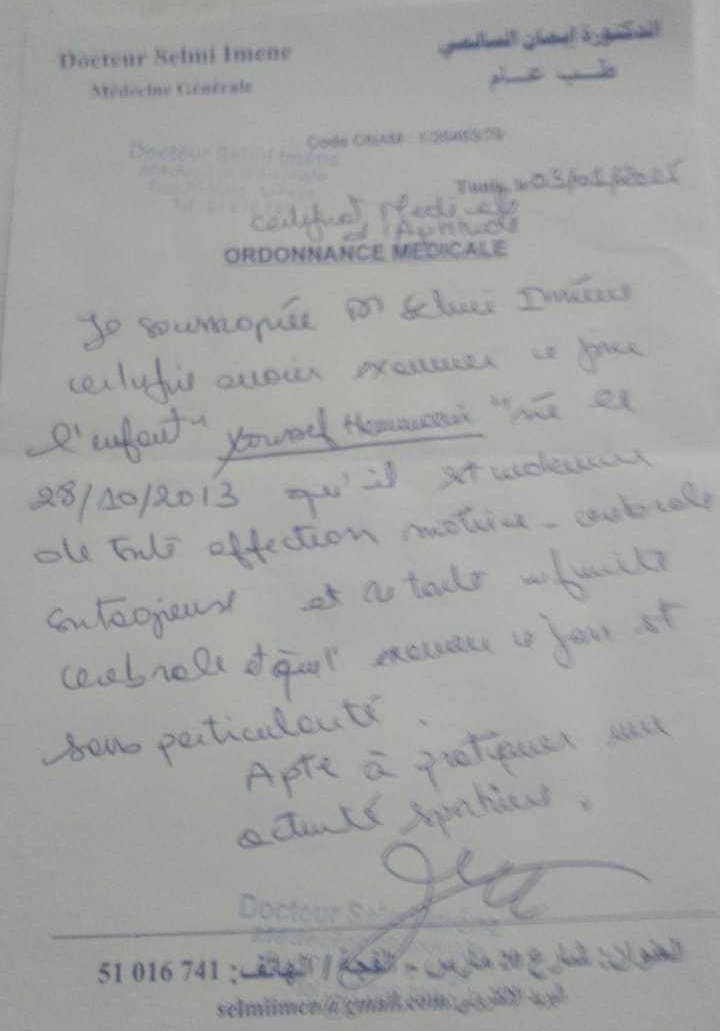 Docteur Selmi Imene
Médecine Générale
الدكتورة إيمان السالمي
طب عام
Code CNAM :
Docteur Selmi Imene
Certificat Medicale
d'Aptitude
ORDONNANCE MEDICALE
Je soussignée Dr Selmi Imène
certifie avoir examiner ce jour
l'enfant " Youssef " né le
28/10/2013 qu'il est indemne
de toute affection motrice - cerebrale
contagieuse et de toute infirmité
cerebrale et que l' examen ce jour est
sans particularité .
Apte à pratiquer une
activité sportive .
Docteur
العنوان: شارع 20 مارس - الفجة / الهاتف: 51 016 741
selmiimen@gmail.com